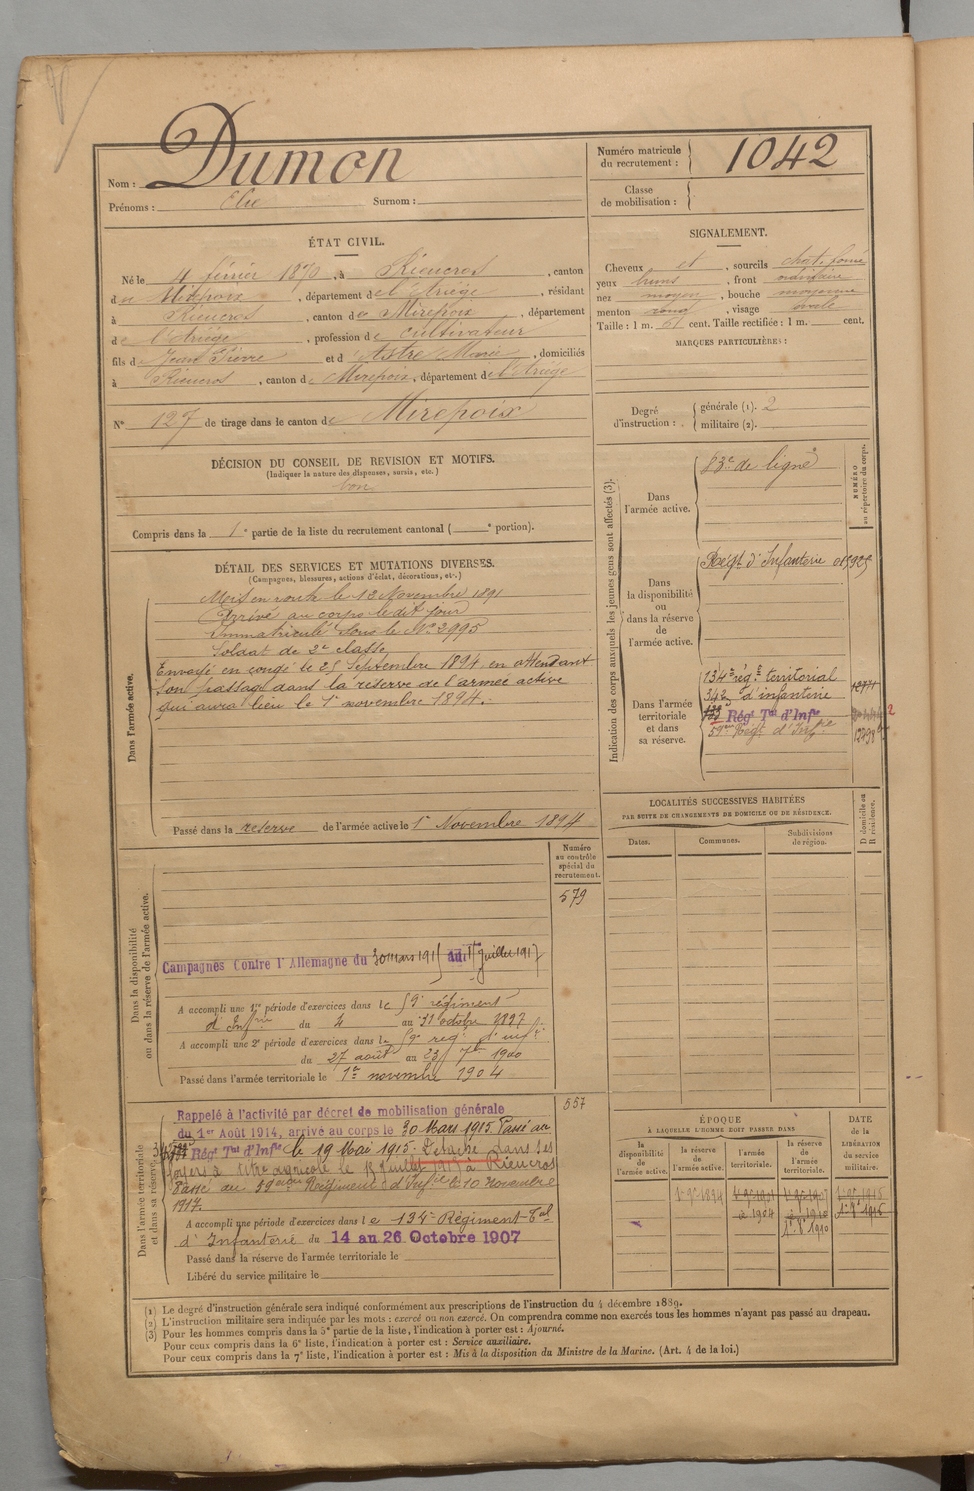 Nom : Dumon
Prénoms : Elie Surnom :
Numéro matricule du recrutement : 1042
Classe de mobilisation :
ÉTAT CIVIL.
Né le 4 février 1870, à Rieucros, canton
de Mirepoix, département de l'Ariège, résidant
à Rieucros, canton de Mirepoix, département
de l'Ariège, profession de cultivateur
fils de Jean Pierre et d'Astre Marie, domiciliés
à Rieucros, canton de Mirepoix, département de l'Ariège
N° 127 de tirage dans le canton de Mirepoix
SIGNALEMENT.
Cheveux et, sourcils chat. foncé
yeux bruns, front ordinaire
nez moyen, bouche moyenne
menton rond, visage ovale
Taille : 1 m. 61 cent. Taille rectifiée : 1 m. cent.
MARQUES PARTICULIÈRES :
Degré d'instruction : générale (1). 2
militaire (2).
DÉCISION DU CONSEIL DE REVISION ET MOTIFS.
(Indiquer la nature des dispenses, sursis, etc.)
bon
Compris dans la 1e partie de la liste du recrutement cantonal ( e portion).
DÉTAIL DES SERVICES ET MUTATIONS DIVERSES.
(Campagnes, blessures, actions d'éclat, décorations, etc.)
Dans l'armée active.
Mis en route le 12 Novembre 1891
Arrivé au corps le dit jour
Immatriculé sous le N° 2995
Soldat de 2e classe
Envoyé en congé le 25 Septembre 1894 en attendant
son passage dans la réserve de l'armée active
qui aura lieu le 1er novembre 1894.
Passé dans la réserve de l'armée active le 1er Novembre 1894
Indication des corps auxquels les jeunes gens sont affectés (3).
NUMÉRO au répertoire du corps.
Dans l'armée active.
83e de ligne
Dans la disponibilité ou dans la réserve de l'armée active.
Régt d'Infanterie
Dans l'armée territoriale et dans sa réserve.
134e rég.t territorial
d'infanterie
Régt Tal d'Infie
59eme Régt d'Infrie
LOCALITÉS SUCCESSIVES HABITÉES
PAR SUITE DE CHANGEMENTS DE DOMICILE OU DE RÉSIDENCE.
D domicile ou R résidence.
Dates. Communes. Subdivisions de région.
Dans la disponibilité ou dans la réserve de l'armée active.
Numéro au contrôle spécial du recrutement.
579
Campagnes Contre l'Allemagne du 30 mars 1915 au 15 juillet 1917
A accompli une 1re période d'exercices dans le 59e régiment
d'Infrie du 4 au 31 octobre 1897.
A accompli une 2e période d'exercices dans le 59e rég. d'inf.
du 27 août au 23 7bre 1900
Passé dans l'armée territoriale le 1er novembre 1904
Dans l'armée territoriale et dans sa réserve.
557
Rappelé à l'activité par décret de mobilisation générale
du 1er Août 1914, arrivé au corps le 30 Mars 1915. Passé au
Régt Tal d'Infie le 19 Mai 1915. Détaché dans ses
foyers à titre agricole le 15 Juillet 1917 à Rieucros
Passé au 59eme Régiment d'Infrie le 10 novembre
1917.
A accompli une période d'exercices dans le 134e Régiment Tal
d'Infanterie du 14 au 26 Octobre 1907
Passé dans la réserve de l'armée territoriale le
Libéré du service militaire le
ÉPOQUE
À LAQUELLE L'HOMME DOIT PASSER DANS
la disponibilité de l'armée active.
la réserve de l'armée active.
l'armée territoriale.
la réserve de l'armée territoriale.
DATE de la LIBÉRATION du service militaire.
(1) Le degré d'instruction générale sera indiqué conformément aux prescriptions de l'instruction du 4 décembre 1889.
(2) L'instruction militaire sera indiquée par les mots : exercé ou non exercé. On comprendra comme non exercés tous les hommes n'ayant pas passé au drapeau.
(3) Pour les hommes compris dans la 5e partie de la liste, l'indication à porter est : Ajourné.
Pour ceux compris dans la 6e liste, l'indication à porter est : Service auxiliaire.
Pour ceux compris dans la 7e liste, l'indication à porter est : Mis à la disposition du Ministre de la Marine. (Art. 4 de la loi.)